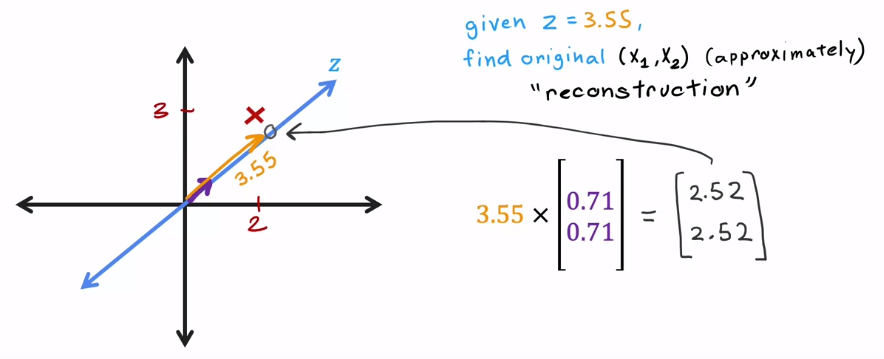 given z = 3.55,
find original (x₁,x₂) (approximately)
"reconstruction"
z
3
3.55
2
3.55 × [0.71 0.71] = [2.52 2.52]